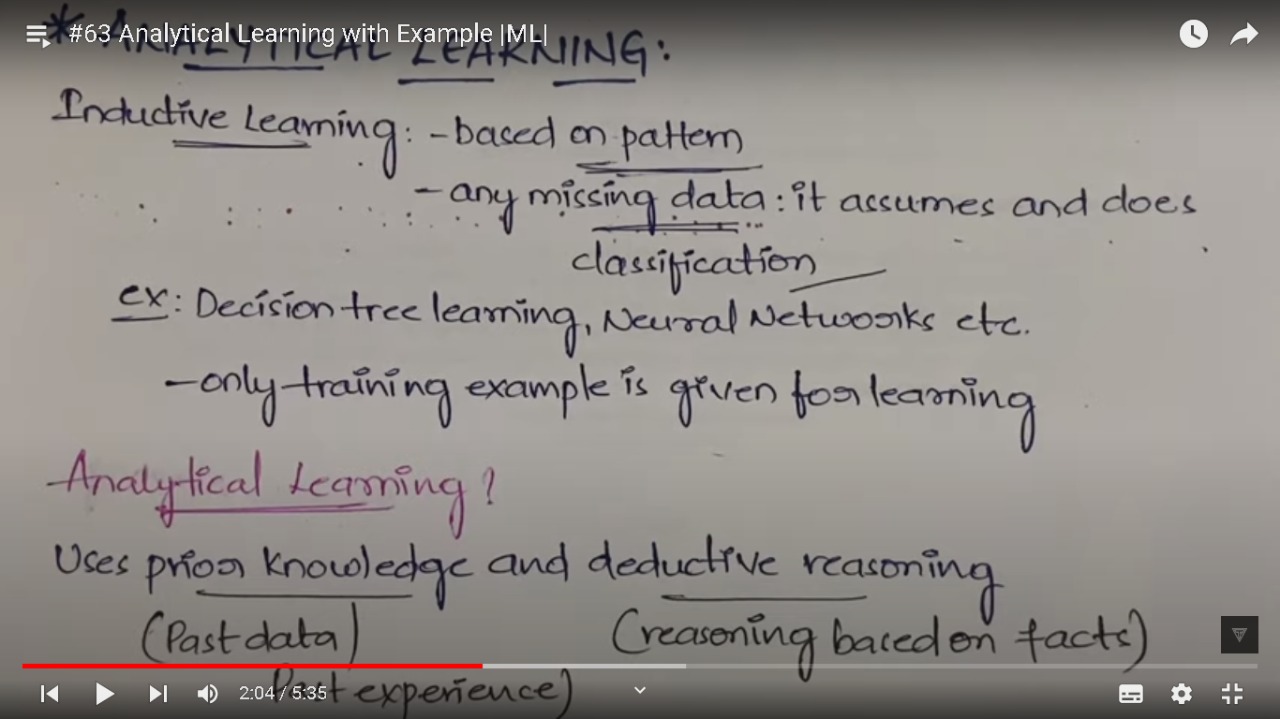 #63 Analytical Learning with Example |ML|
* ANALYTICAL LEARNING:
Inductive Learning: - based on pattern
- any missing data: it assumes and does
classification
ex: Decision tree learning, Neural Networks etc.
- only training example is given for learning
Analytical Learning?
Uses prior knowledge and deductive reasoning
(Past data) (reasoning based on facts)
Past experience)
2:04 / 5:35